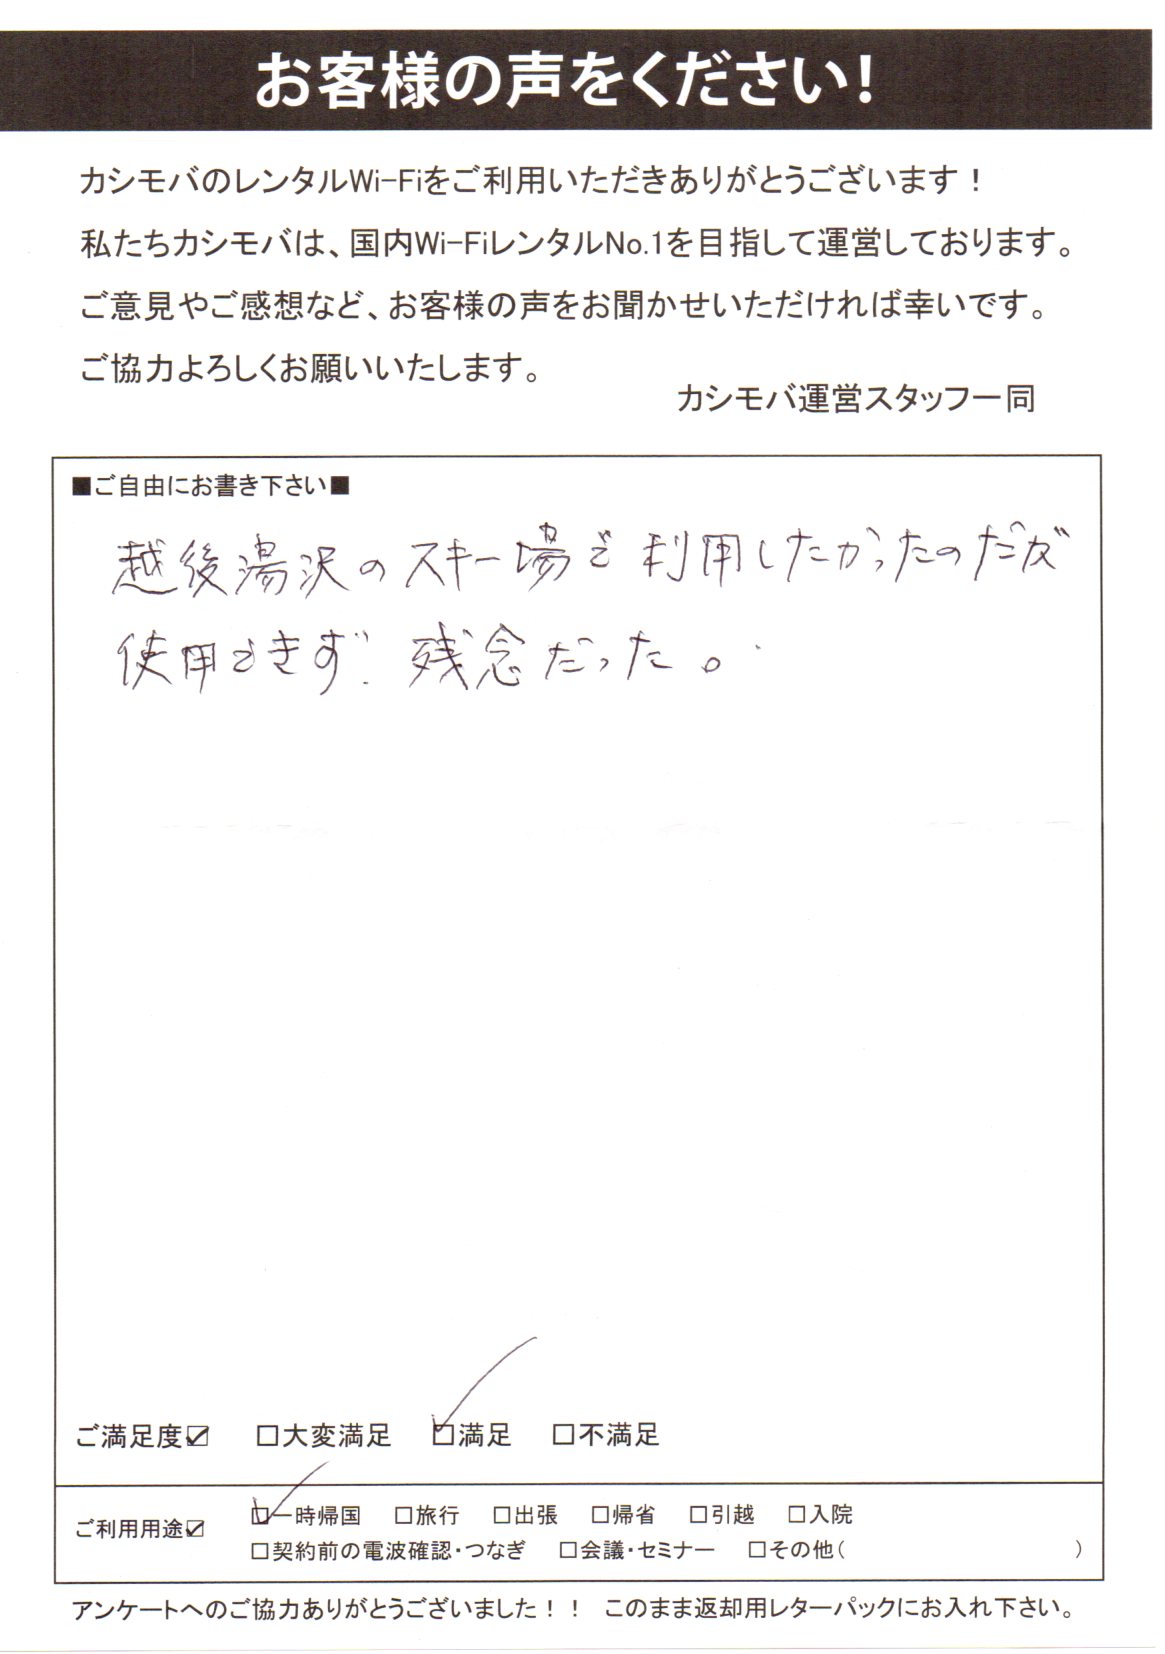 お客様の声をください！
カシモバのレンタルWi-Fiをご利用いただきありがとうございます！
私たちカシモバは、国内Wi-FiレンタルNo.1を目指して運営しております。
ご意見やご感想など、お客様の声をお聞かせいただければ幸いです。
ご協力よろしくお願いいたします。
カシモバ運営スタッフ一同
■ご自由にお書き下さい■
越後湯沢のスキー場で利用したかったのだが
使用できず、残念だった。
ご満足度☑ □大変満足 ☑満足 □不満足
ご利用用途☑ ☑一時帰国 □旅行 □出張 □帰省 □引越 □入院
□契約前の電波確認・つなぎ □会議・セミナー □その他（ ）
アンケートへのご協力ありがとうございました！！ このまま返却用レターパックにお入れ下さい。